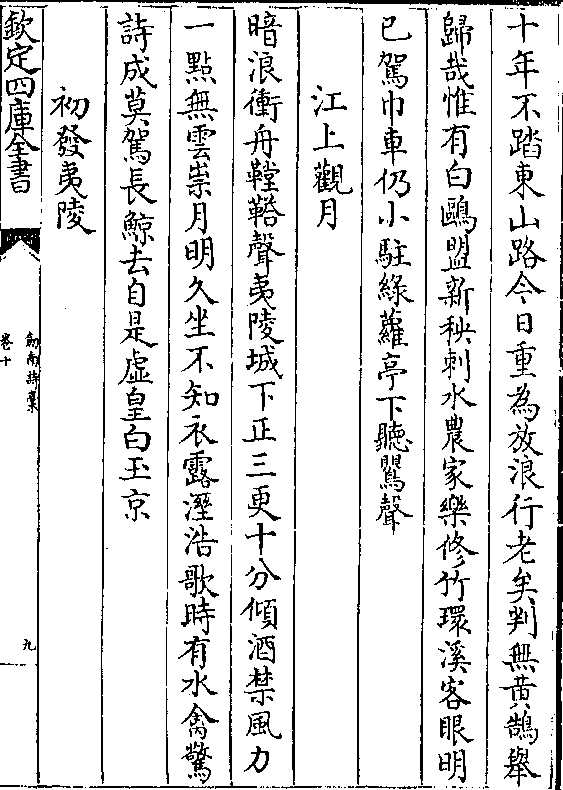 十年不踏東山路今日重為放浪行老矣判無黄鵠舉
歸哉惟有白鷗盟新秧刺水農家樂修竹環溪客眼明
已駕巾車仍小駐綠蘿亭下聽鶯聲
江上觀月
暗浪衝舟鞺鞳聲夷陵城下正三更十分傾酒禁風力
一點無雲崇月明久坐不知衣露溼浩歌時有水禽驚
詩成莫駕長鯨去自是虛皇白玉京
初發夷陵
欽定四庫全書
劍南詩藁
卷十
九